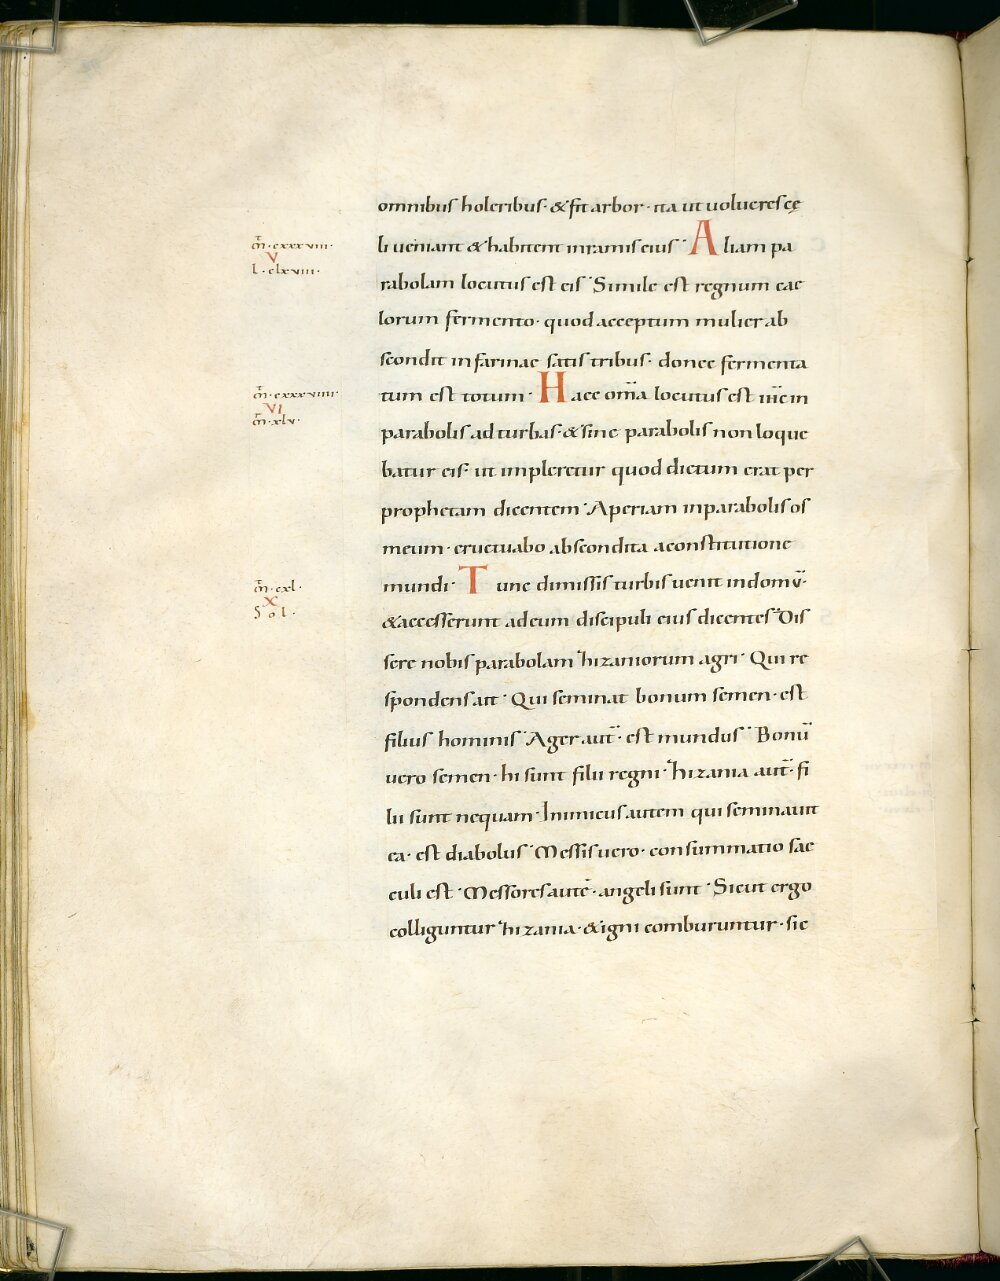 omnibus holeribus · & fit arbor · ita ut volucres cę
li veniant & habitent in ramis eius · Aliam pa
rabolam locutus est eis · Simile est regnum cae
lorum fermento · quod acceptum mulier ab
scondit in farinae satis tribus · donec fermenta
tum est totum · Haec om̄a locutus est ih̄c in
parabolis ad turbas · & sine parabolis non loque
batur eis · ut impleretur quod dictum erat per
prophetam dicentem · Aperiam in parabolis os
meum · eructuabo abscondita a constitutione
mundi · Tunc dimissis turbis venit in domū ·
& accesserunt ad eum discipuli eius dicentes · Dis
sere nobis parabolam hizaniorum agri · Qui re
spondens ait · Qui seminat bonum semen · est
filius hominis · Ager aut̄ · est mundus · Bonū
vero semen · hi sunt filii regni · hizania aut̄ · fi
lii sunt nequam · Inimicus autem qui seminavit
ea · est diabolus · Messis vero · consummatio sae
culi est · Messores autē · angeli sunt · Sicut ergo
colliguntur hizania · & igni comburuntur · sic
m̄ · cxxxviii ·
V
l · clxviii ·
m̄ · cxxxviiii ·
VI
m̄ · xlv ·
m̄ · cxl ·
X
S o l ·